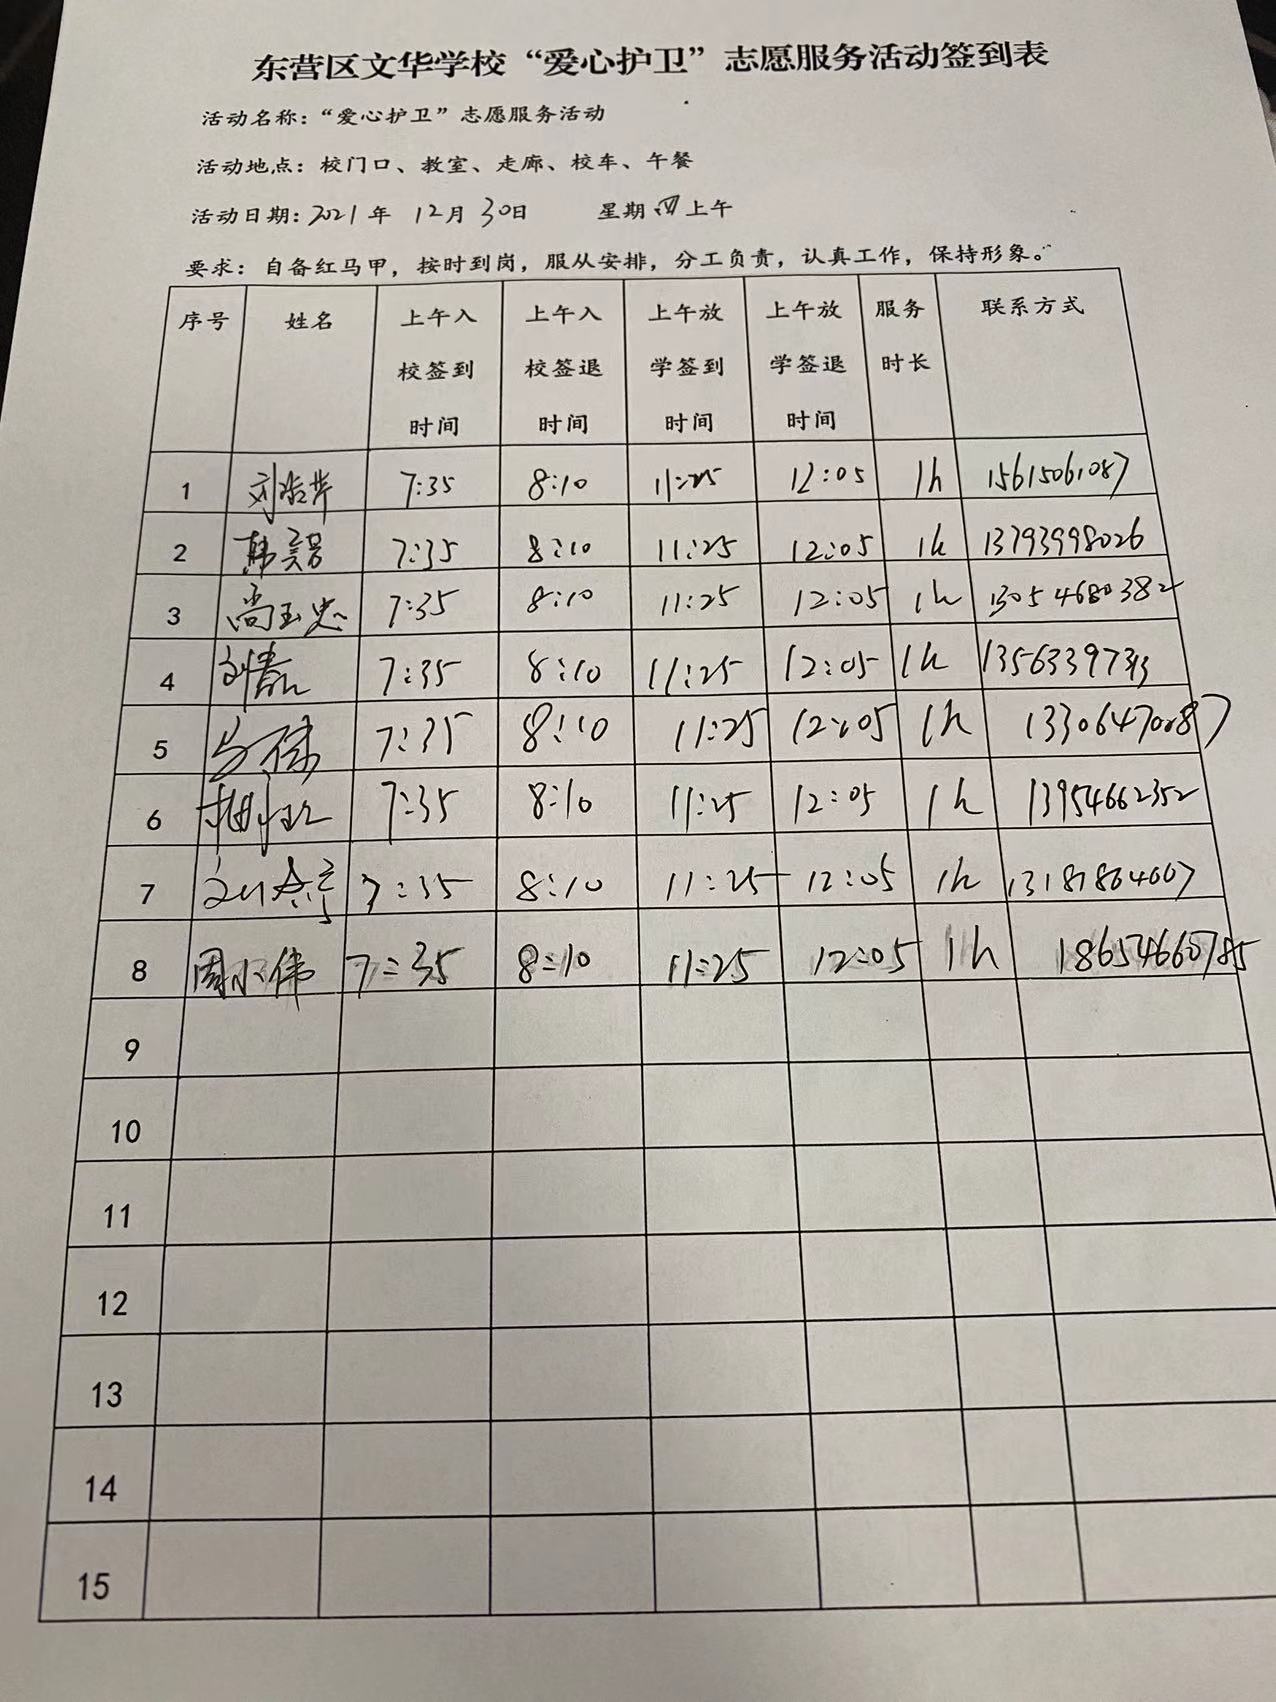 东营区文华学校“爱心护卫”志愿服务活动签到表
活动名称：“爱心护卫”志愿服务活动
活动地点：校门口、教室、走廊、校车、午餐
活动日期：2021年 12月 30日 星期四上午
要求：自备红马甲，按时到岗，服从安排，分工负责，认真工作，保持形象。
序号 姓名 上午入校签到时间 上午入校签退时间 上午放学签到时间 上午放学签退时间 服务时长 联系方式
1 7:35 8:10 11:25 12:05 1h 15615061087
2 7:35 8:10 11:25 12:05 1h 13793998026
3 尚玉忠 7:35 8:10 11:25 12:05 1h 13054680382
4 7:35 8:10 11:25 12:05 1h
5 7:35 8:10 11:25 12:05 1h 13306470287
6 7:35 8:10 11:25 12:05 1h 13954662352
7 7:35 8:10 11:25 12:05 1h 13181864667
8 周小伟 7:35 8:10 11:25 12:05 1h 18654660785
9
10
11
12
13
14
15